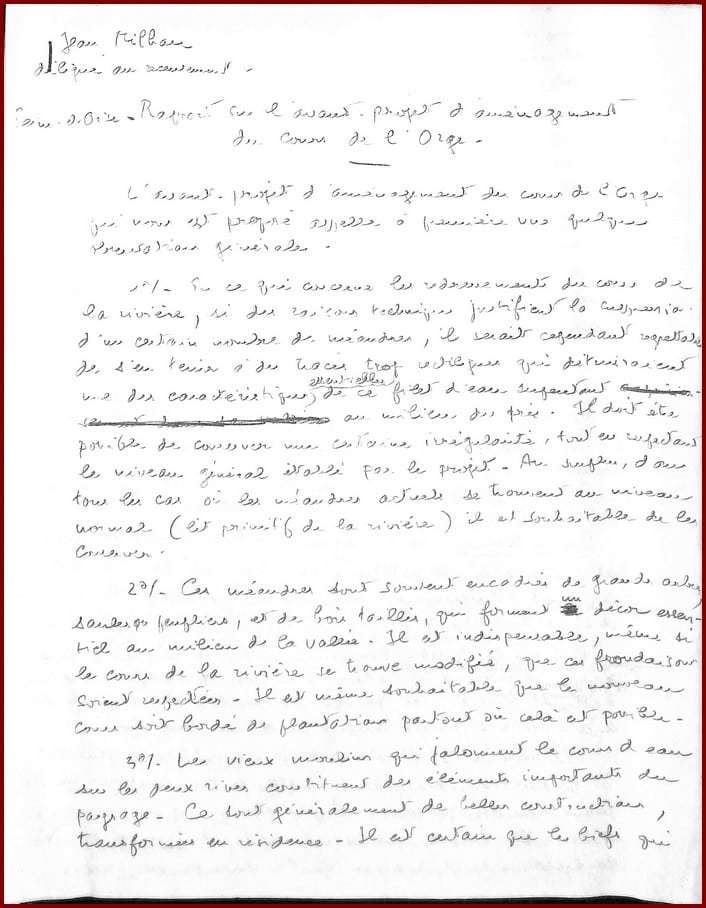 Jean Milhau
délégué au recensement.
Seine-et-Oise - Rapport sur l'avant-projet d'aménagement
du cours de l'Orge.
L'avant-projet d'aménagement du cours de l'Orge
qui vous est proposé appelle à première vue quelques
observations générales.
1°/- En ce qui concerne les redressements du cours de
la rivière, si des raisons techniques justifient la suppression
d'un certain nombre de méandres, il serait cependant
de s'en tenir à des tracés trop rectilignes qui détruiraient
une des caractéristiques essentielles de ce filet d'eau serpentant
au milieu des prés. Il doit être
possible de conserver une certaine irrégularité, tout en respectant
le niveau général établi par le projet - Au surplus, dans
tous les cas où les méandres actuels se trouvent au niveau
normal (lit primitif de la rivière) il est souhaitable de les
conserver.
2°/- Ces méandres sont souvent encadrés de grands arbres,
saules ou peupliers, et de bois taillis, qui forment un décor essen-
tiel au milieu de la vallée. Il est indispensable, même si
le cours de la rivière se trouve modifié, que ces frondaisons
soient respectées - Il est même souhaitable que le nouveau
cours soit bordé de plantations partout où celà est possible -
3°/- Les vieux moulins qui jalonnent le cours d'eau
sur les deux rives constituent des éléments importants du
paysage - Ce sont généralement de belles constructions,
transformées en résidence - Il est certain que les biefs qui